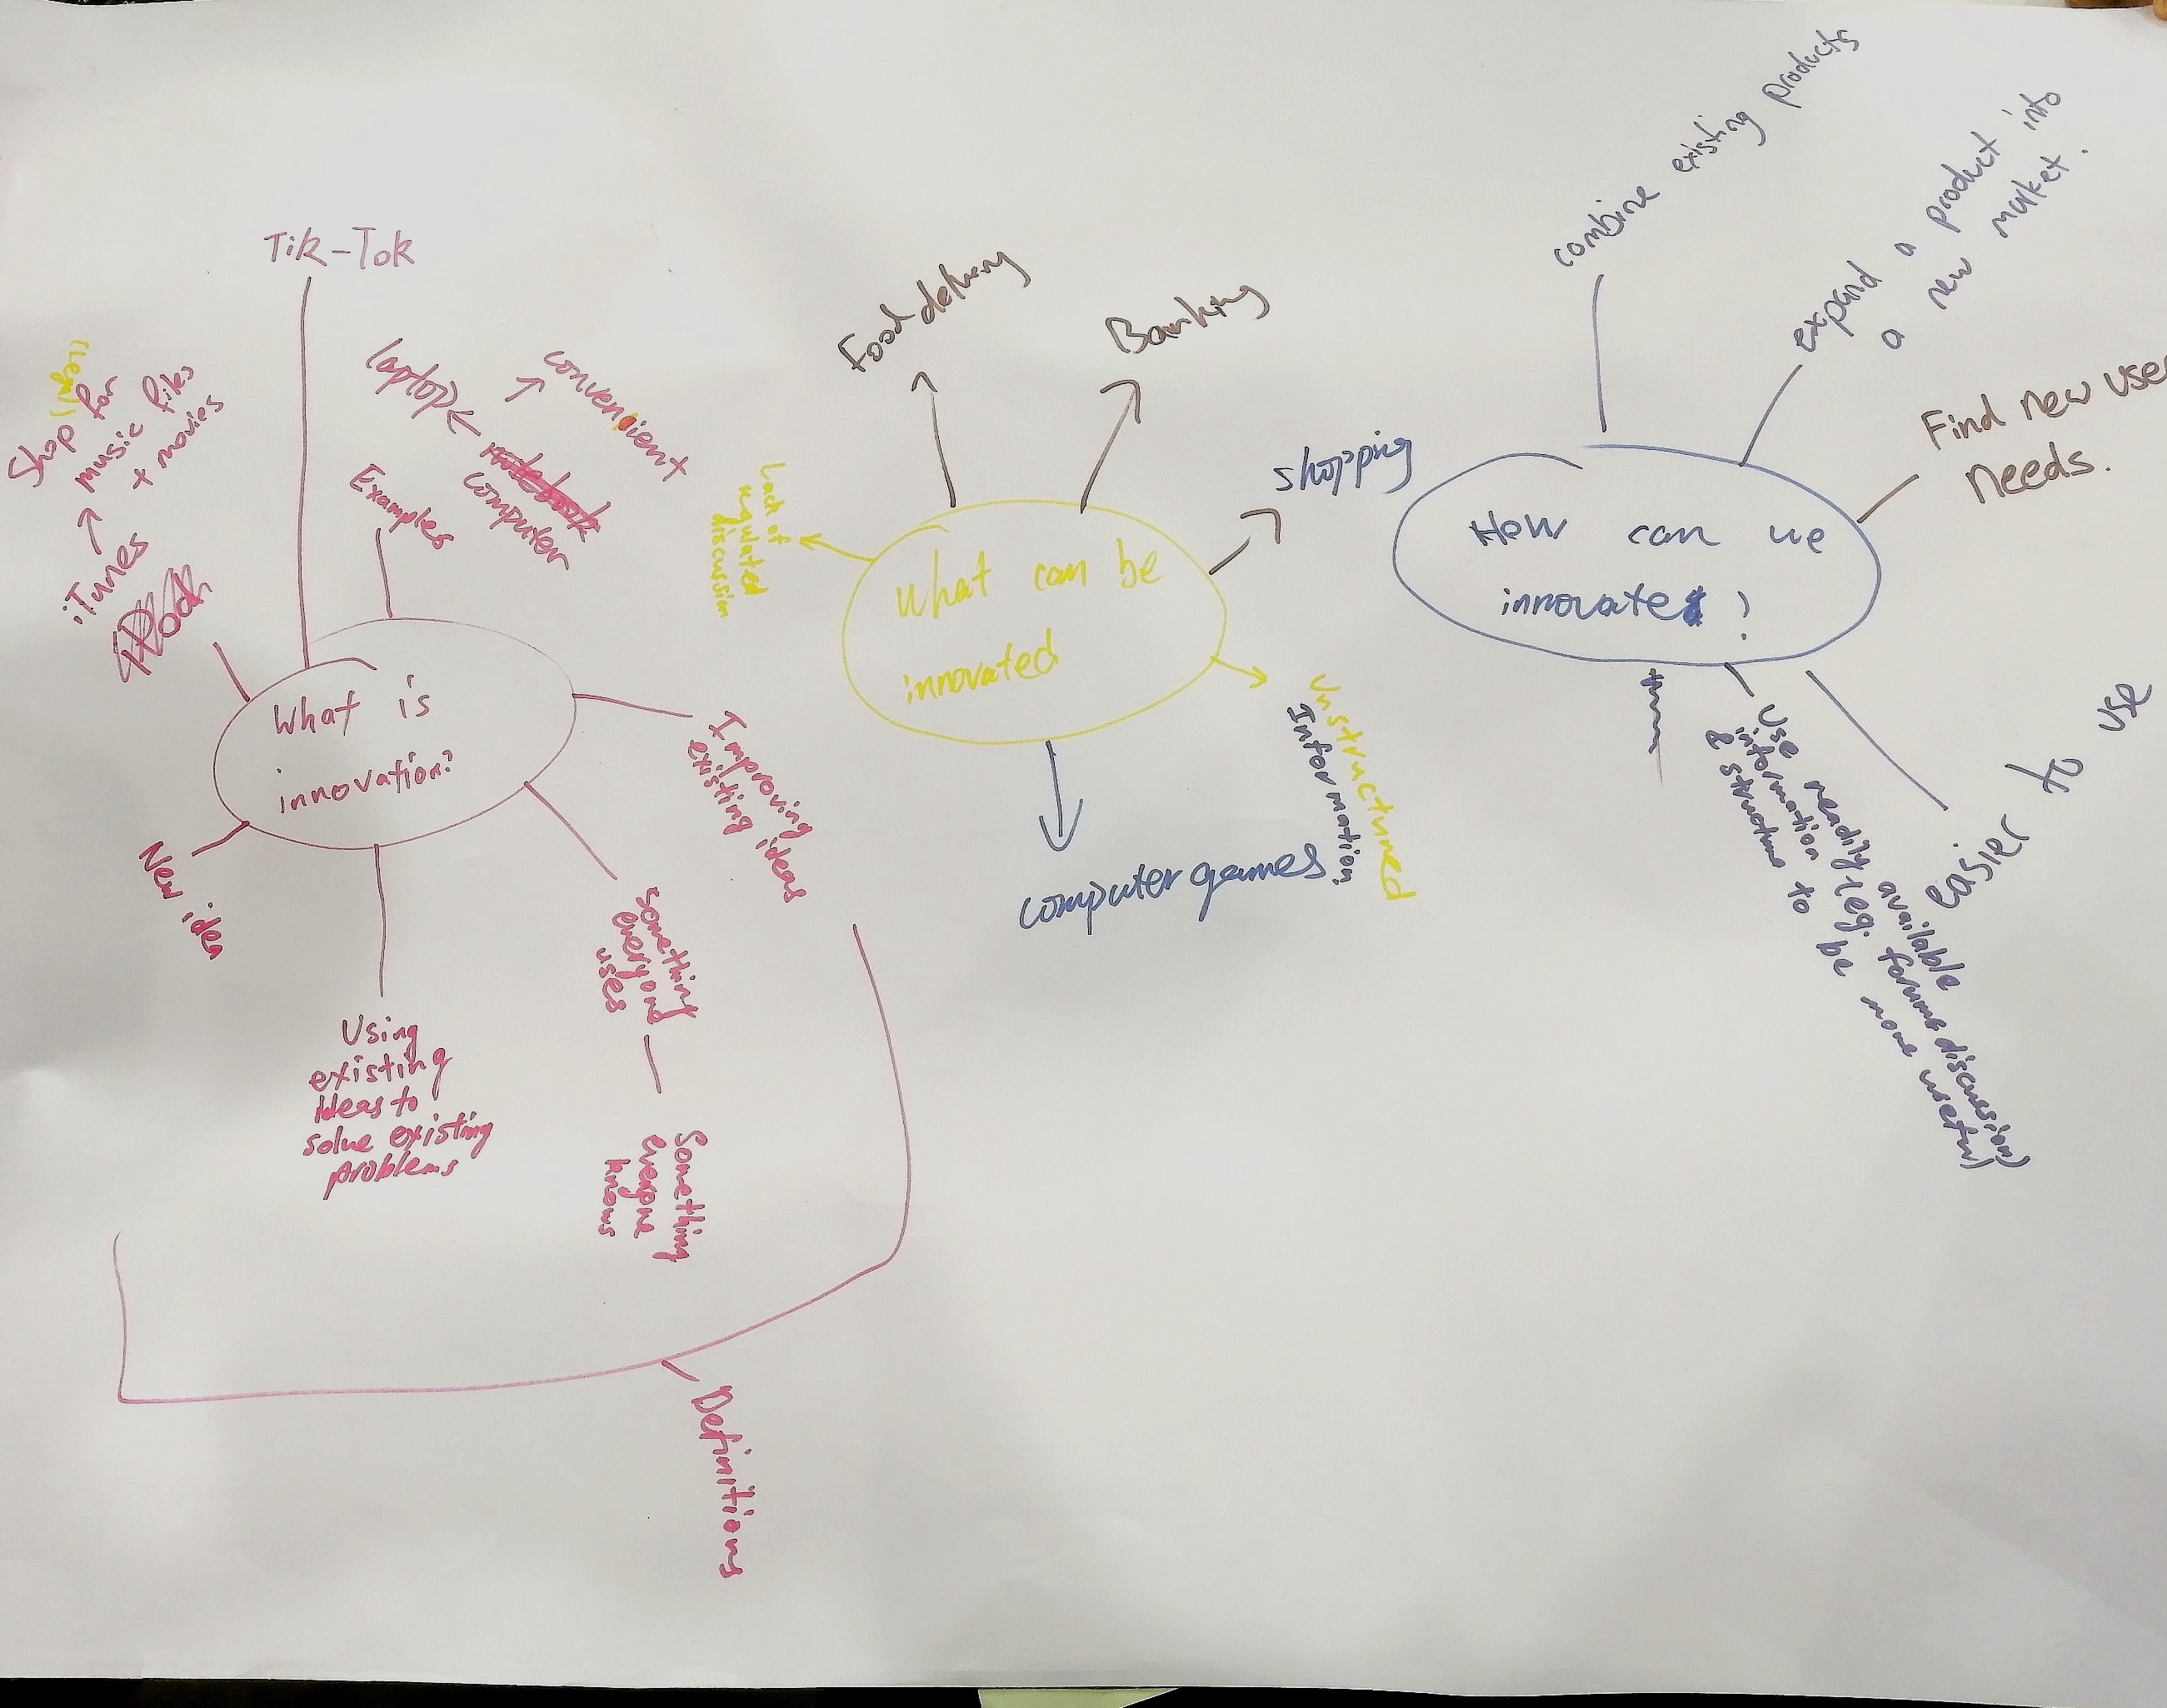 Tik-Tok
(legal)
Shop for
music files
+ movies
iTunes
laptop
convenient
computer
Examples
What is
innovation?
Improving
existing ideas
something
everyone
uses
Something
everyone
knows
New idea
Using
existing
ideas to
solve existing
problems
Definitions
Food delivery
Banking
shopping
Lack of
regulated
discussion
What can be
innovated
Unstructured
Information
computer games
combine existing products
expand a product into
a new market.
Find new user
needs.
How can we
innovate ?
Use readily available
information (eg. forums discussion)
& structure to be more useful
easier to use